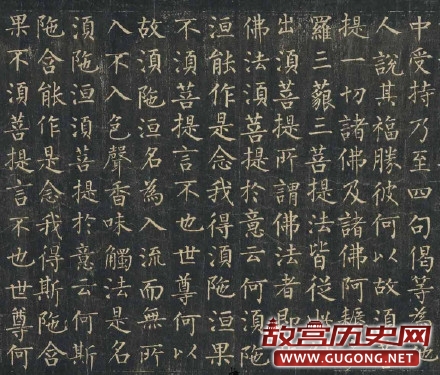 中受持乃至四句偈等為他
人說其福勝彼何以故須
提一切諸佛及諸佛阿耨
羅三藐三菩提法皆從
出須菩提所謂佛法者即
佛法須菩提於意云何須陁
洹能作是念我得須陁洹果
不須菩提言不也世尊何以
故須陁洹名為入流而無所
入不入色聲香味觸法是名
須陁洹須菩提於意云何斯
陁含能作是念我得斯陁含
果不須菩提言不也世尊何
故宫历史网
www.gugong.net